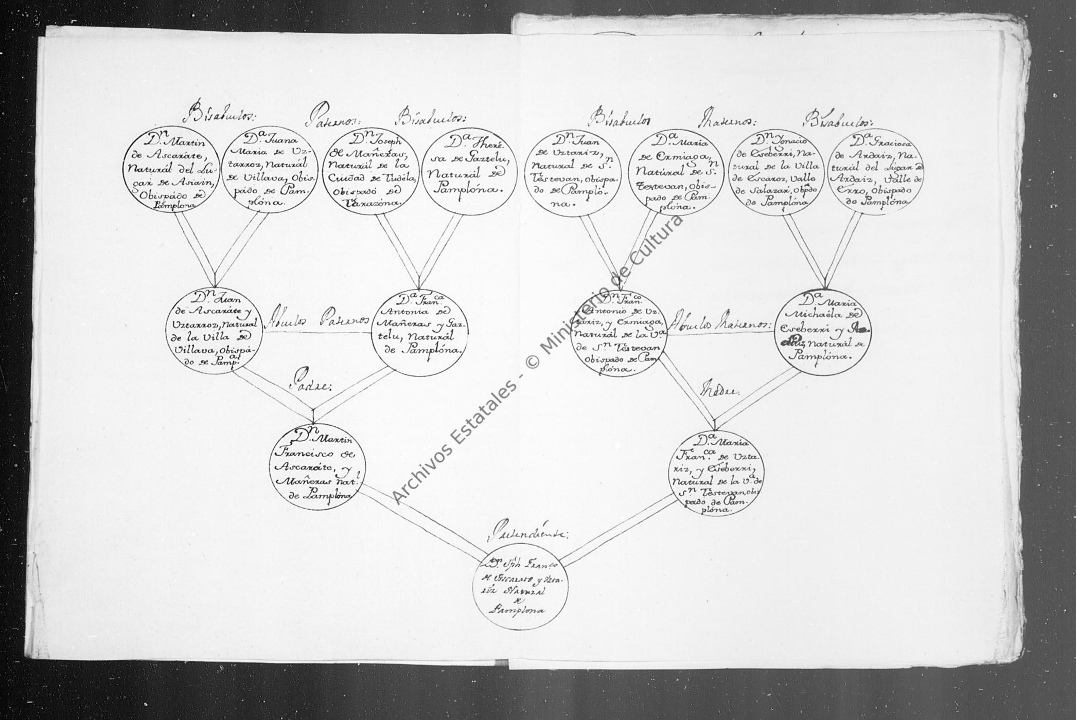 Bisabuelos:
Paternos:
Bisabuelos:
Bisabuelos
Maternos:
Bisabuelos:
Dn. Martin
de Ascaràte,
Naturàl del Lu-
gar de Asiain,
Obispàdo de
Pamplona
Da. Juana
Maria de Uz-
tarroz, Naturàl
de Villava, Obis-
pàdo de Pam-
plóna.
Dn. Joseph
de Mañeras,
Naturàl de la
Ciudad de Tudéla,
Obispàdo de
Tarazòna.
Da. There-
sa de Gaztelu,
Naturàl de
Pamplóna.
Dn. Juan
de Uztariz,
Natural de Sn.
Testevan, Obispa-
do de Pamplo-
na.
Da. Maria
de Ermiaga,
Natural de Sn.
Testevan, Obis-
pado de Pam-
plóna.
Dn. Ygnacio
de Eseberri, Na-
tural de la Villa
de Escaroz, Valle
de Salazar, Obpdo
de Pamplóna
Da. Graciosa
de Ardaiz, Na-
tural del Lugar de
Ardaiz, Valle de
Erro, Obispado
de Pamplóna
Dn. Juan
de Ascaràte y
Uztarroz, Natural
de la Villa de
Villava, Obispà-
do de Pampa.
Abuelos Paternos
Da. Franca.
Antonia de
Mañeras y Gaz-
telu, Naturàl
de Pamplóna.
Dn. Frano.
Antonio de Uz-
tàriz, y Ermiaga,
Naturàl de la Va.
de Sn. Testevan
Obispado de Pam-
plóna.
Abuelos Maternos:
Da. Maria
Michaèla de
Eseberri y
Natural de
Pamplóna.
Padre:
Madre:
Dn. Martin
Francisco de
Ascaràte, y
Mañeras natl.
de Pamplóna
Da. Maria
Franca. de Uzta-
riz, y Eseberri,
Natural de la Va. de
Sn. Testevan, obis-
pado de Pam-
plóna.
Pretendiente:
Dn. Jph Franco
de Ascarate y Uzta-
riz Natural
de
Pamplona
Archivos Estatales - © Ministerio de Cultura